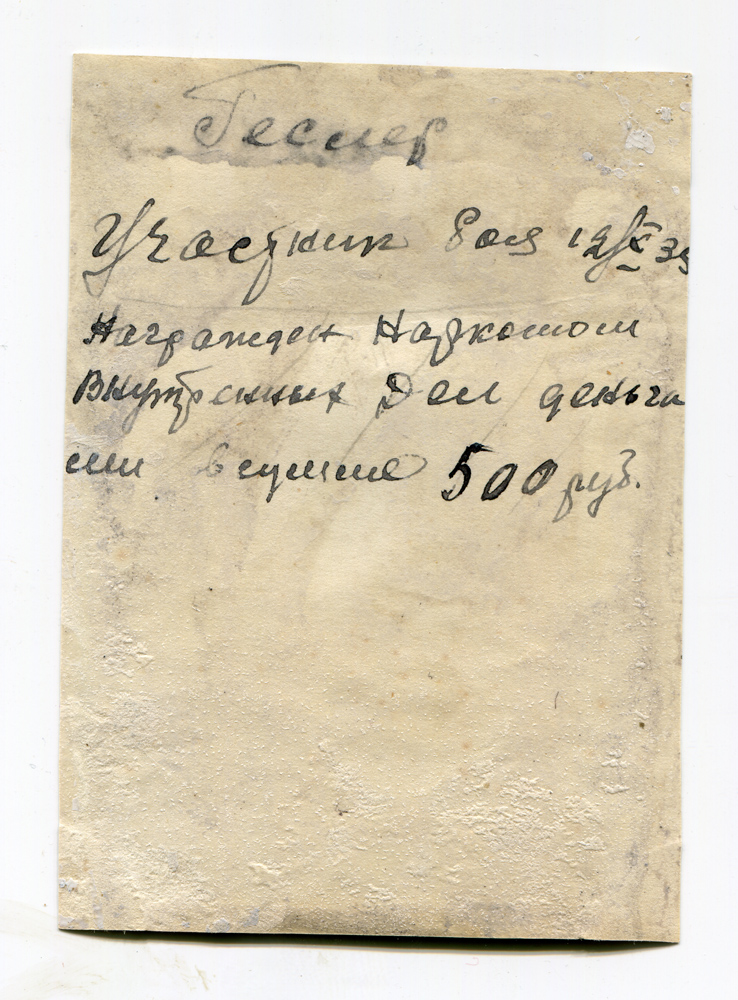 Геслер
Участник боя 12/X 35
Награжден Наркомом
Внутренных Дел деньга
ми в сумме 500 руб.